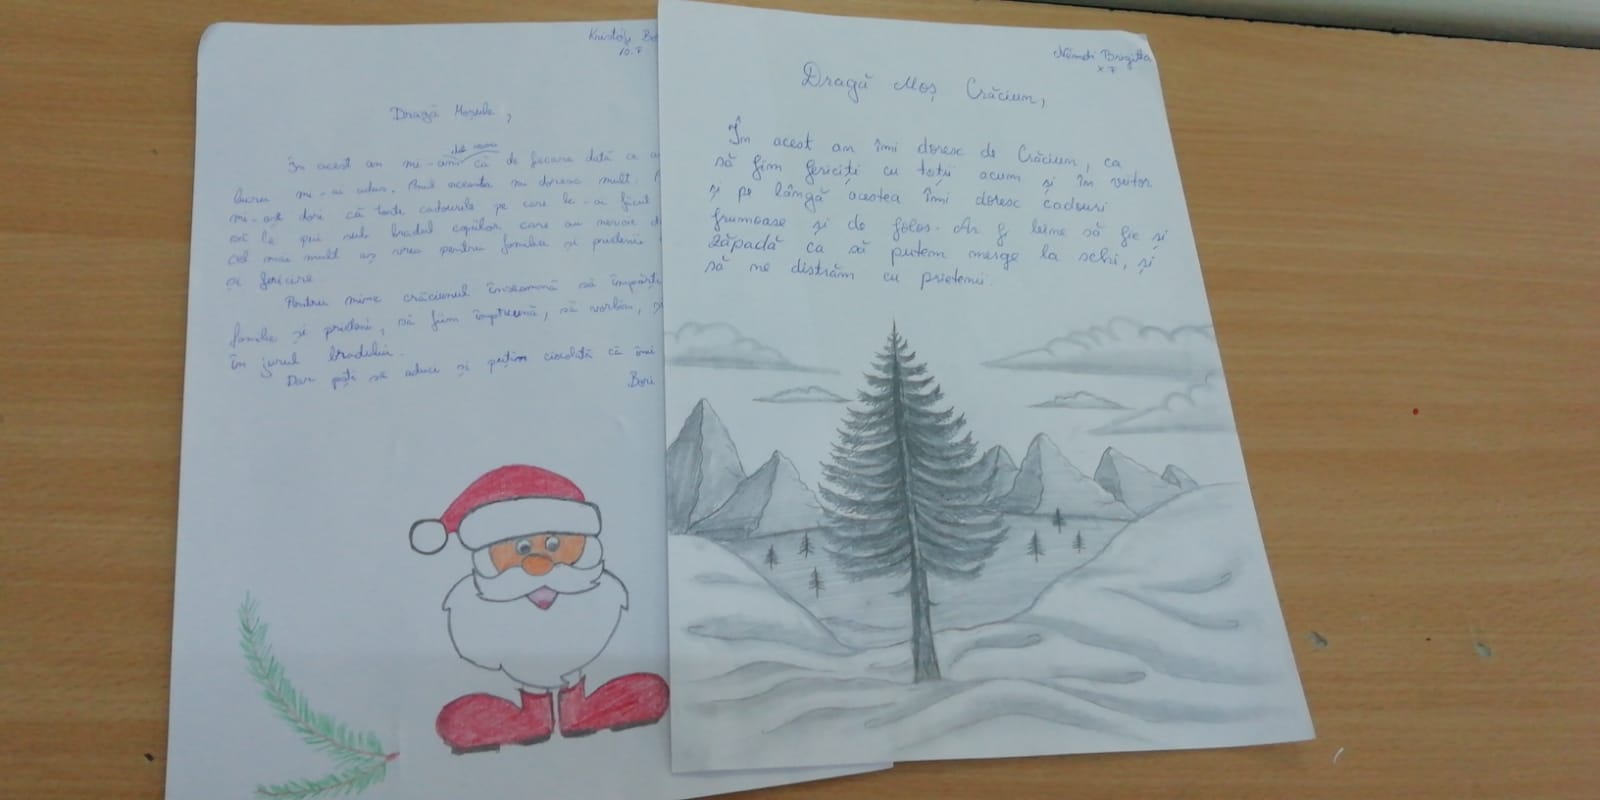 Kristóf Bo
10.F
Dragă Moșule,
În acest an mi-am că de fiecare dată ce a
lucru mi-ai adus. Anul aceasta nu doresc mult.
mi-aș dori că toate cadourile pe care le-ai făcut
să le pui sub bradul copiilor care au nevoie d
cel mai mult aș vrea pentru familia și prietenii
și fericire.
Pentru mine crăciunul înseamnă să împărți
familie și prieteni, să fim împreună, să vorbim,
în jurul bradului.
Dar poți să aduci și puțin ciocolată că îmi
Bori
Németi Brigitta
X F
Dragă Moș Crăciun,
În acest an îmi doresc de Crăciun, ca
să fim fericiți cu toții acum și în viitor
și pe lângă acestea îmi doresc cadouri
frumoase și de folos. Ar fi bine să fie și
zăpadă ca să putem merge la schi, și
să ne distrăm cu prietenii.